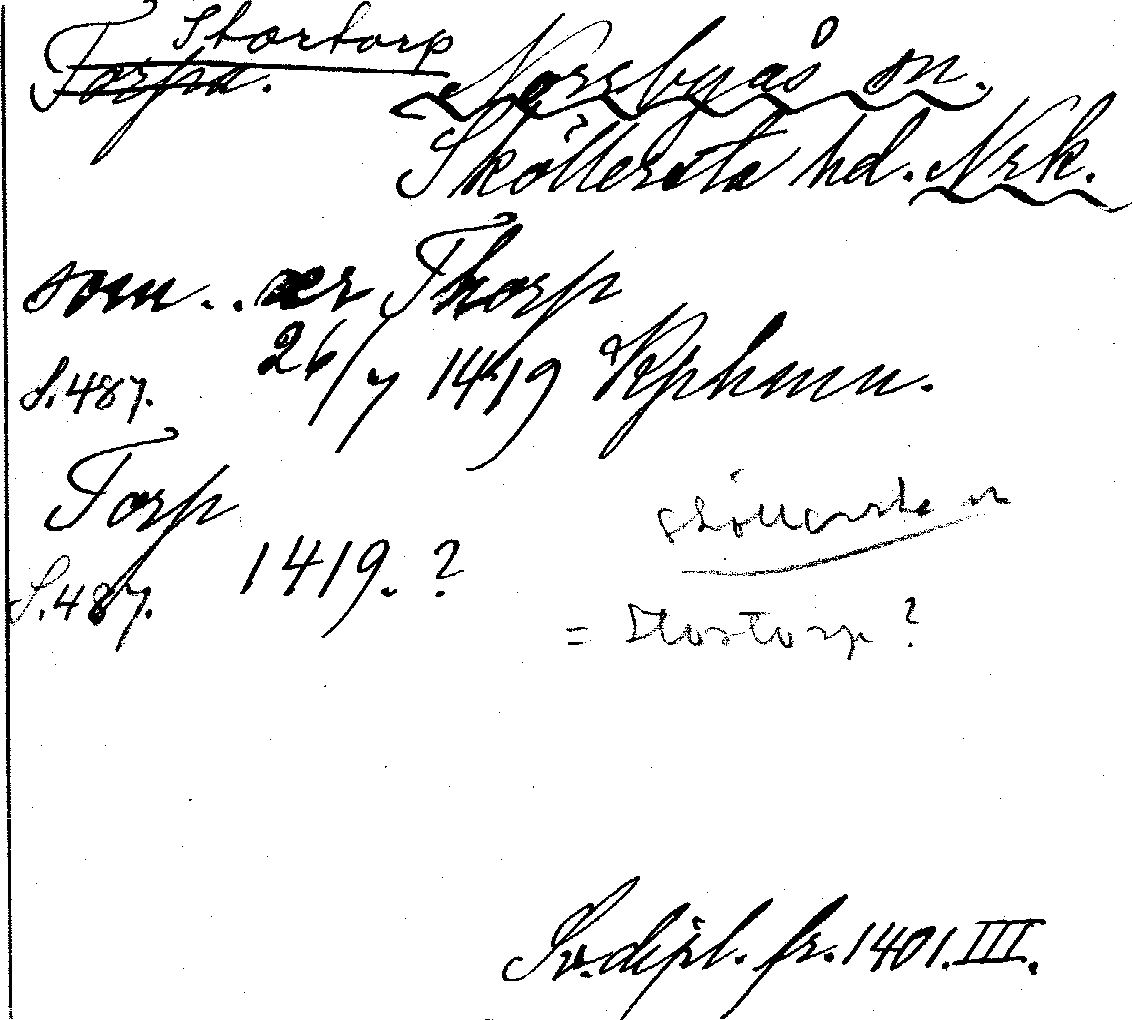 Stortorp
Torpa. Norrbyås sn.
Sköllersta hd. Nrk.
som .. ær Thorp
S. 487. 26/7 1419 Kphmn.
Torp
S. 487. 1419. ?
Sköllersta sn
= Stortorp ?
Sv. dipl. fr. 1401. III.